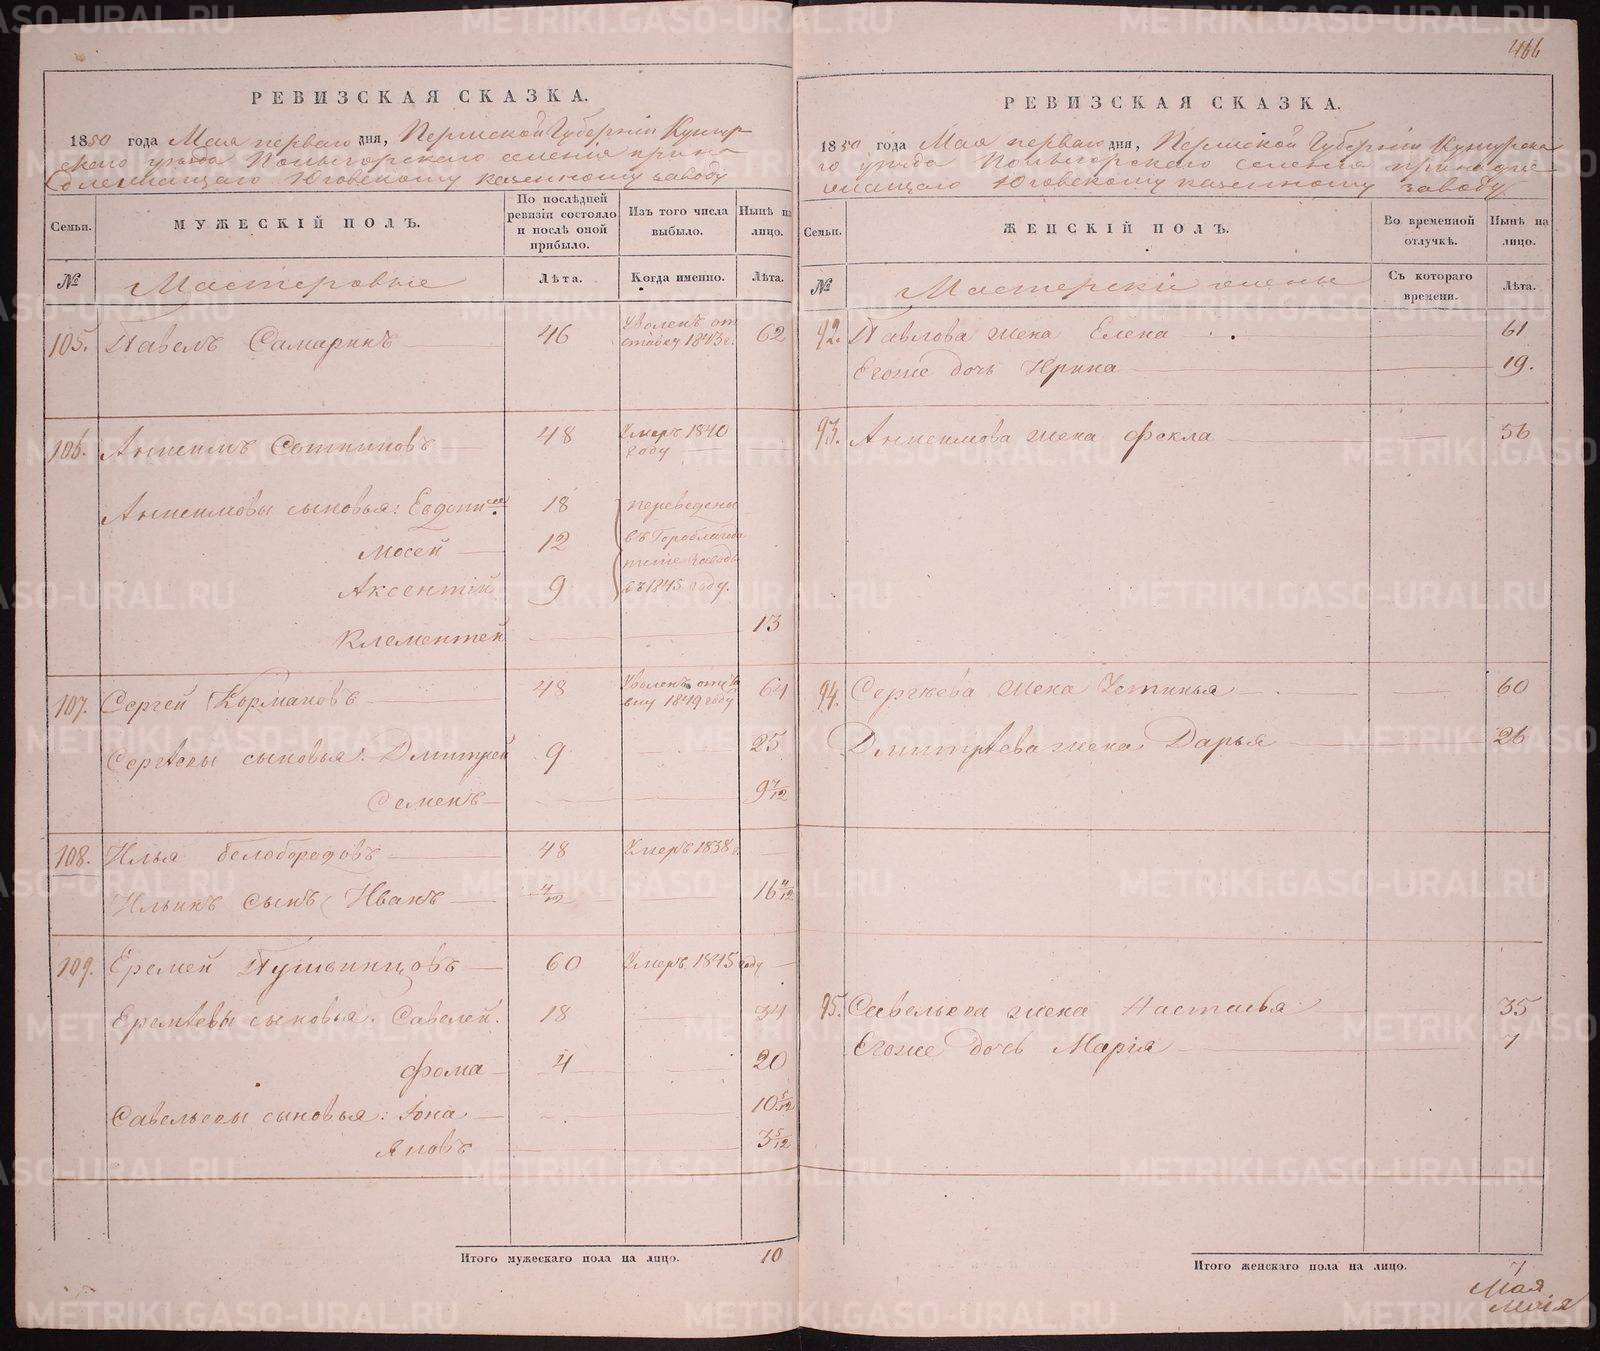 466
РЕВИЗСКАЯ СКАЗКА.
1850 года Мая перваго дня, Пермской Губерніи Кунгур
скаго уезда селенія прина
длежащаго Юговскому казенному заводу
Семьи. МУЖЕСКІЙ ПОЛЪ. По послѣдней ревизіи состояло и послѣ оной прибыло. Изъ того числа выбыло. Нынѣ на лицо.
№ Мастеровые Лѣта. Когда именно. Лѣта.
105. Павелъ Самаринъ 46 Уволенъ от ставку 1843 г. 62
106. Анисимъ 48 Умеръ 1840 году
Анисимовы сыновья: 18 переведены
Мосей 12 въ Гороблагода
Аксентій 9 въ 1845 году.
Клементей 13
107. Сергей Кормановъ 48 Уволенъ 1849 году 64
Сергѣевы сыновья: Дмитрей 9 25
Семенъ 9 7/12
108. Илья белобородовъ 48 Умеръ 1838 г.
Ильинъ сынъ Иванъ 4/12 16 4/12
109. Еремей 60 Умеръ 1845 году
Еремѣевы сыновья: Савелей. 18 34
фома 4 20
Савельевы сыновья: Іона 10 5/12
Яковъ 3 5/12
Итого мужескаго пола на лицо. 10
РЕВИЗСКАЯ СКАЗКА.
1850 года Мая перваго дня, Пермской Губерніи Кунгурска
го уезда селенія принадле
жащаго Юговскому казенному заводу
Семьи. ЖЕНСКІЙ ПОЛЪ. Во временной отлучкѣ. Нынѣ на лицо.
№ Мастерскіе жены Съ котораго времени. Лѣта.
92. Павлова жена Елена 61
Егоже дочь Ирина 19.
93. Анисимова жена фекла 56
94. Сергѣева жена Устинья 60
Дмитрѣева жена Дарья 26
95. Савельева жена Настасья 35
Егоже дочь Марія 7
Итого женскаго пола на лицо. 7
METRIKI.GASO-URAL.RU